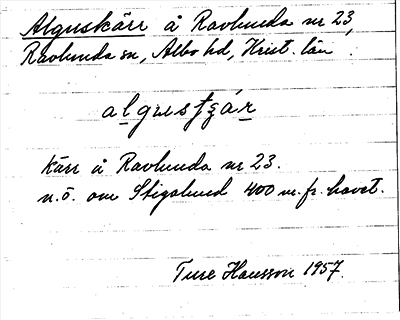 Alguskärr å Ravlunda nr 23,
Ravlunda sn, Albo hd, Krist. län.
algusſʒár
Kärr å Ravlunda nr 23.
n.ö. om Stigslund 400 m. fr. havet.
Ture Hansson 1957.